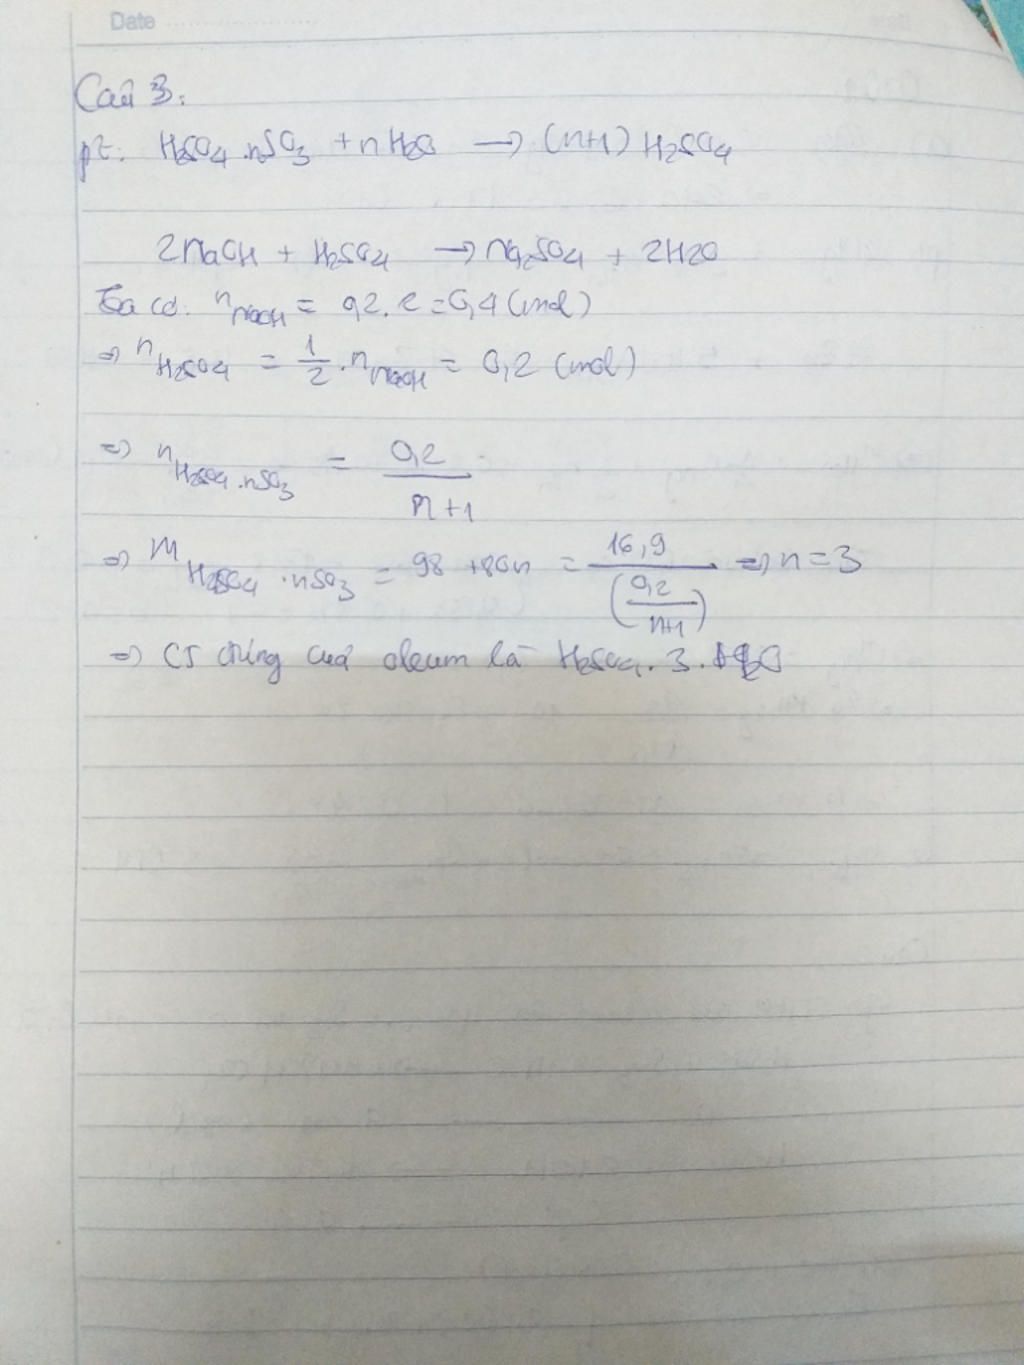 Date
Câu 3:
pt: H2SO4.nSO3 + nH2O → (n+1) H2SO4
2NaOH + H2SO4 → Na2SO4 + 2H2O
Ta có: nNaOH = 0,2.2 = 0,4 (mol)
⇒ nH2SO4 = 1/2 . nNaOH = 0,2 (mol)
⇒ nH2SO4.nSO3 = 0,2/(n+1)
⇒ MH2SO4.nSO3 = 98 + 80n = 16,9/(0,2/(n+1)) ⇒ n = 3
⇒ CT đúng của oleum là H2SO4.3.H2O